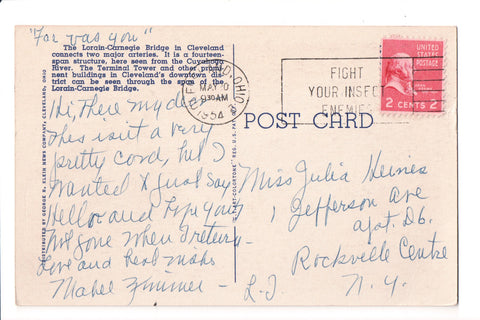 "For vas you"
The Lorain-Carnegie Bridge in Cleveland
connects two major arteries. It is a fourteen-
span structure, here seen from the Cuyahoga
River. The Terminal Tower and other promi-
nent buildings in Cleveland's downtown dis-
trict can be seen through the span of the
Lorain-Carnegie Bridge.
DISTRIBUTED BY GEORGE R. KLEIN NEWS COMPANY, CLEVELAND, OHIO
CLEVELAND, OHIO
MAY 10
930 AM
1954
FIGHT
YOUR INSECT
ENEMIES
UNITED
STATES
POSTAGE
2 CENTS 2
POST CARD
Hi, There my dear
this isn't a very
pretty card, but I
wanted to just say
Hello and hope you're
not gone when I return -
Love and best
Mabel Zimmer -
Miss Julia Heines
1 Jefferson Ave
apt. D6.
Rockville Centre
L.I. N.Y.